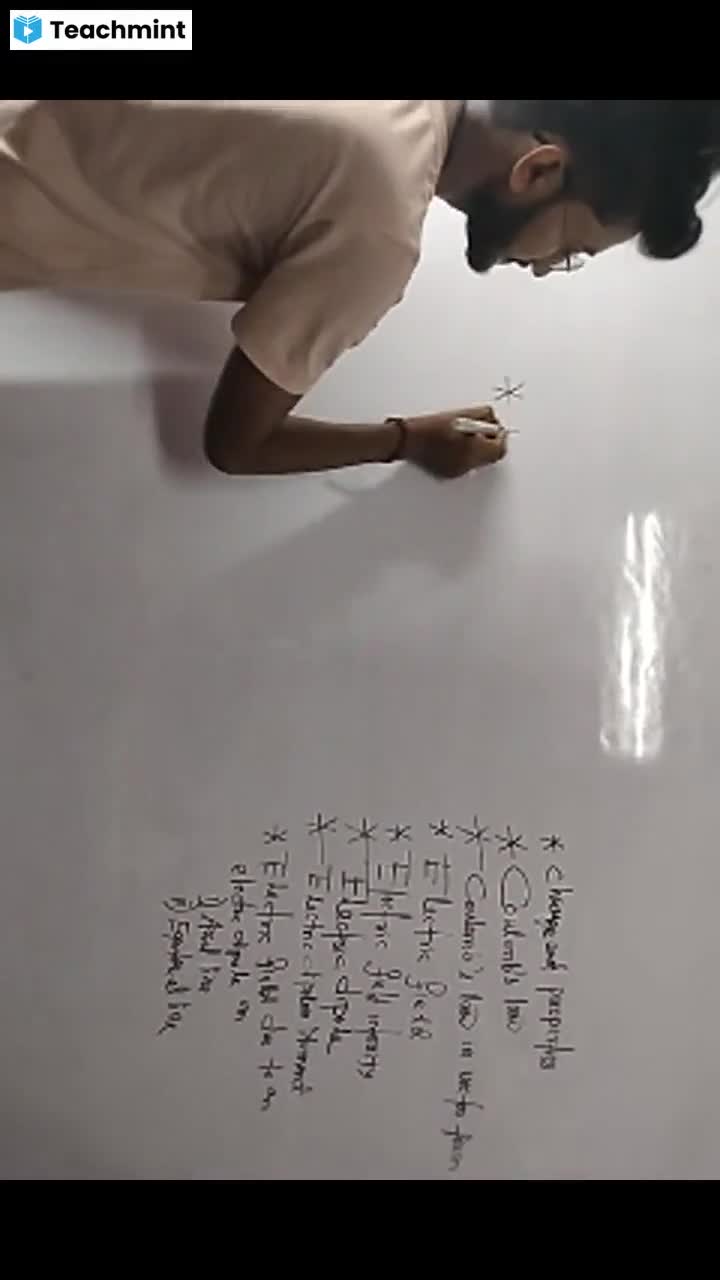 Teachmint
*
* Charge and properties
* Coulomb's law
* Coulomb's law in vector form
* Electric field
* Electric field intensity
* Electric dipole
* Electric dipole Moment
* Electric field due to an
electric dipole on
i) Axial line
ii) Equatorial line